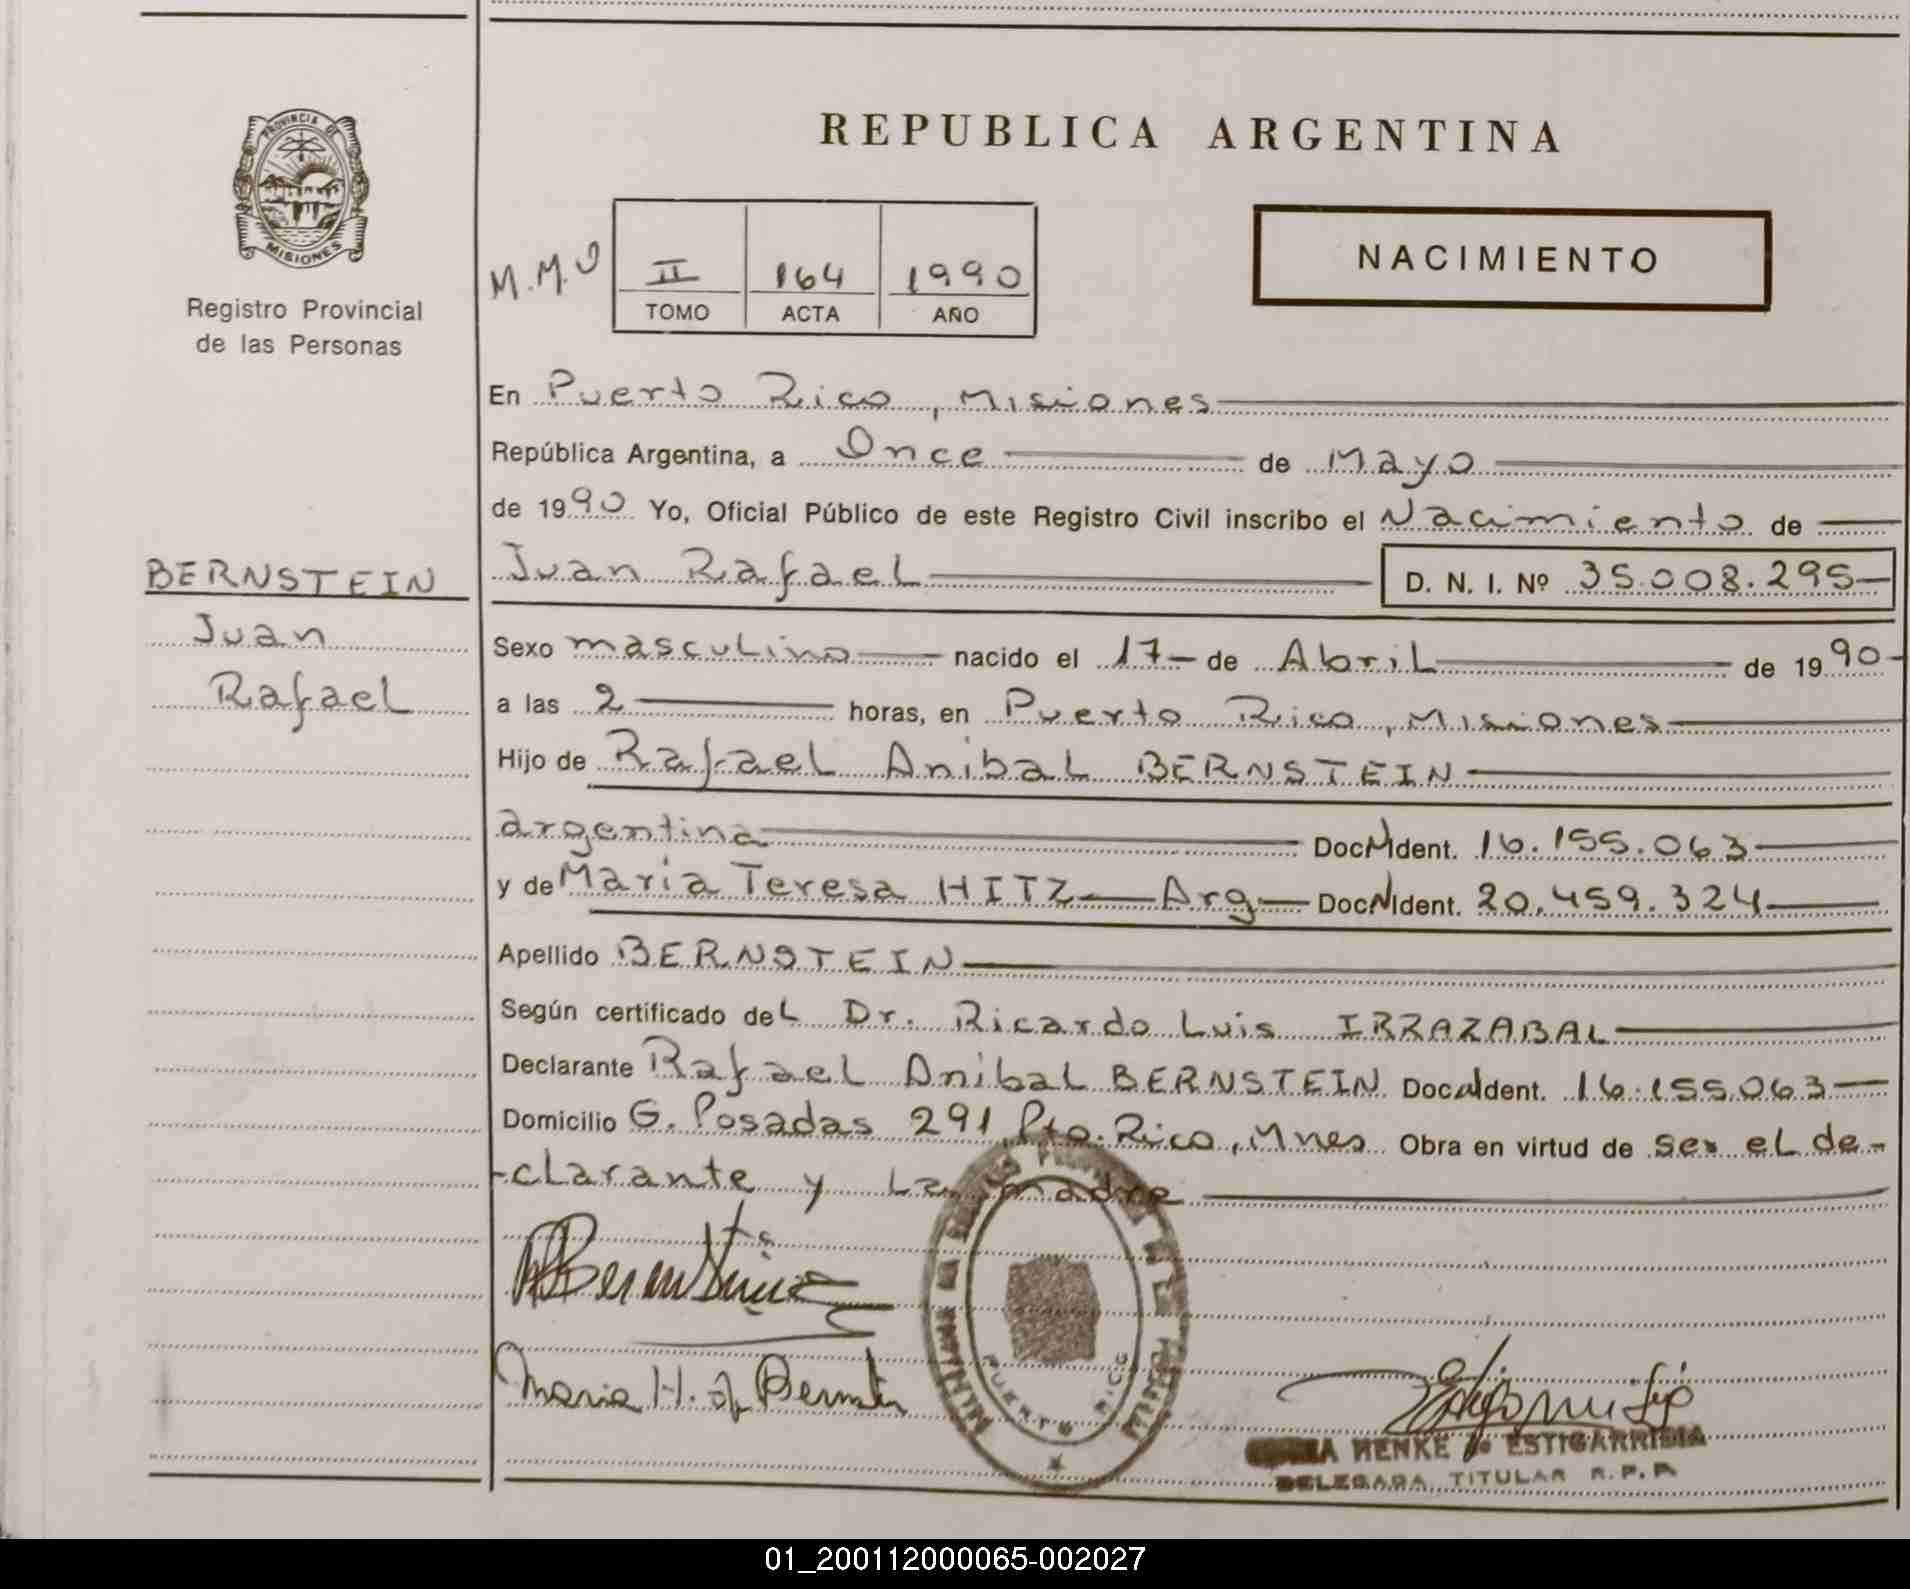 PROVINCIA DE
MISIONES
Registro Provincial
de las Personas
REPUBLICA ARGENTINA
M.M.O
II 164 1990
TOMO ACTA AÑO
NACIMIENTO
En Puerto Rico, Misiones
República Argentina, a Once de Mayo
de 1990 Yo, Oficial Público de este Registro Civil inscribo el Nacimiento de
BERNSTEIN
Juan
Rafael
Juan Rafael D. N. I. Nº 35.008.295
Sexo masculino nacido el 17 de Abril de 1990
a las 2 horas, en Puerto Rico, Misiones
Hijo de Rafael Anibal BERNSTEIN
argentina Doc N Ident. 16.155.063
y de Maria Teresa HITZ Arg Doc N Ident. 20.459.324
Apellido BERNSTEIN
Según certificado del Dr. Ricardo Luis IRRAZABAL
Declarante Rafael Anibal BERNSTEIN Doc N Ident. 16.155.063
Domicilio G. Posadas 291, Pto. Rico, Mnes Obra en virtud de ser el de-
-clarante y la madre
PUERTO RICO
Maria H. de
HENKE de ESTIGARRIBIA
DELEGADA TITULAR R.P.P.
01_200112000065-002027